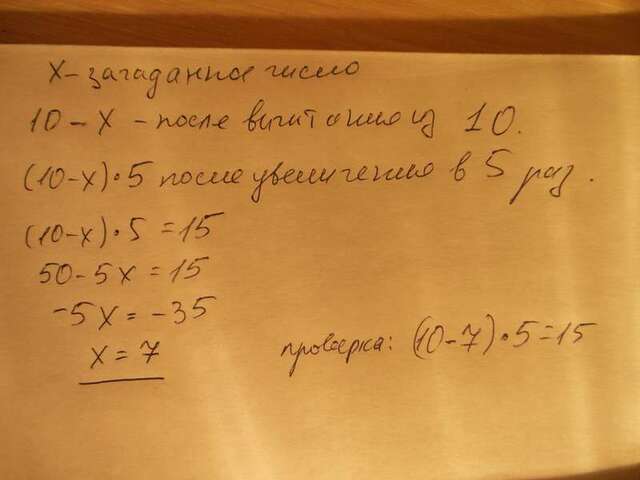 х - загаданное число
10 - х - после вычитания из 10.
(10-х)•5 после увеличения в 5 раз.
(10-х)•5=15
50-5х=15
-5х=-35
х=7
проверка: (10-7)•5=15